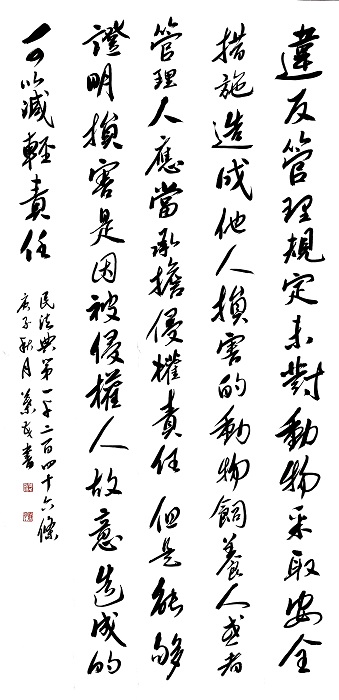 違反管理規定未對動物采取安全
措施造成他人損害的動物飼養人或者
管理人應當承擔侵權責任但是能夠
證明損害是因被侵權人故意造成的
可以減輕責任
民法典第一千二百四十六條
庚子秋月 書